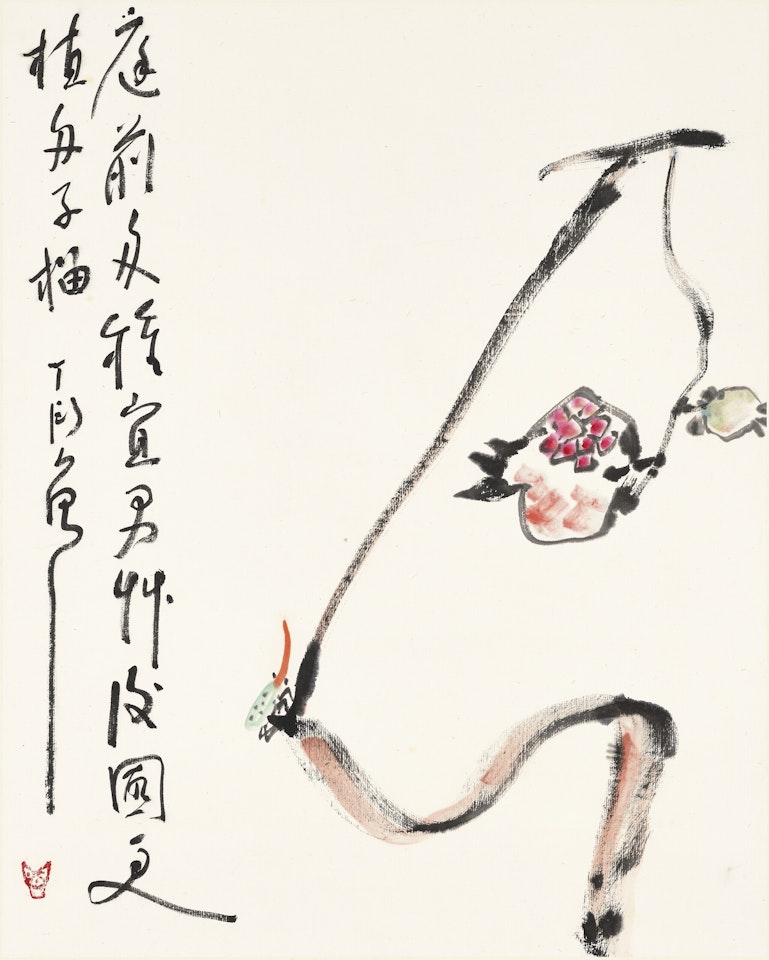 庭前多種宜男艸後園更
植多子榴 丁衍庸